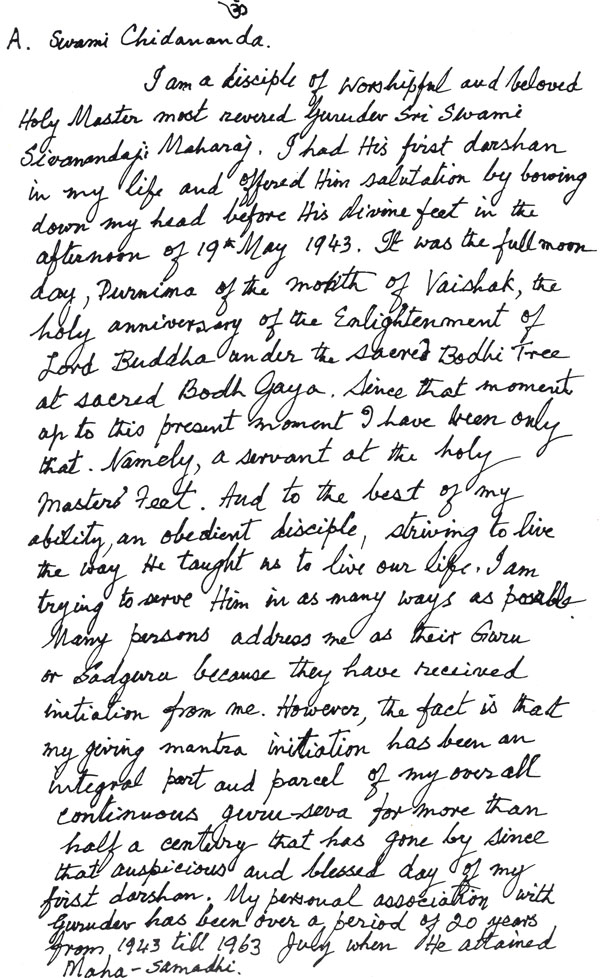 ॐ
A. Swami Chidananda.
I am a disciple of worshipful and beloved
Holy Master most revered Gurudev Sri Swami
Sivanandaji Maharaj. I had His first darshan
in my life and offered Him salutation by bowing
down my head before His divine feet in the
afternoon of 19th May 1943. It was the full moon
day, Purnima of the month of Vaishak, the
holy anniversary of the Enlightenment of
Lord Buddha under the sacred Bodhi Tree
at sacred Bodh Gaya. Since that moment
up to this present moment I have been only
that. Namely, a servant at the holy
Masters' Feet. And to the best of my
ability, an obedient disciple, striving to live
the way He taught us to live our life. I am
trying to serve Him in as many ways as possible.
Many persons address me as their Guru
or Sadguru because they have received
initiation from me. However, the fact is that
my giving mantra initiation has been an
integral part and parcel of my over all
continuous guru-seva for more than
half a century that has gone by since
that auspicious and blessed day of my
first darshan. My personal association with
Gurudev has been over a period of 20 years
from 1943 till 1963 July when He attained
Maha-Samadhi.